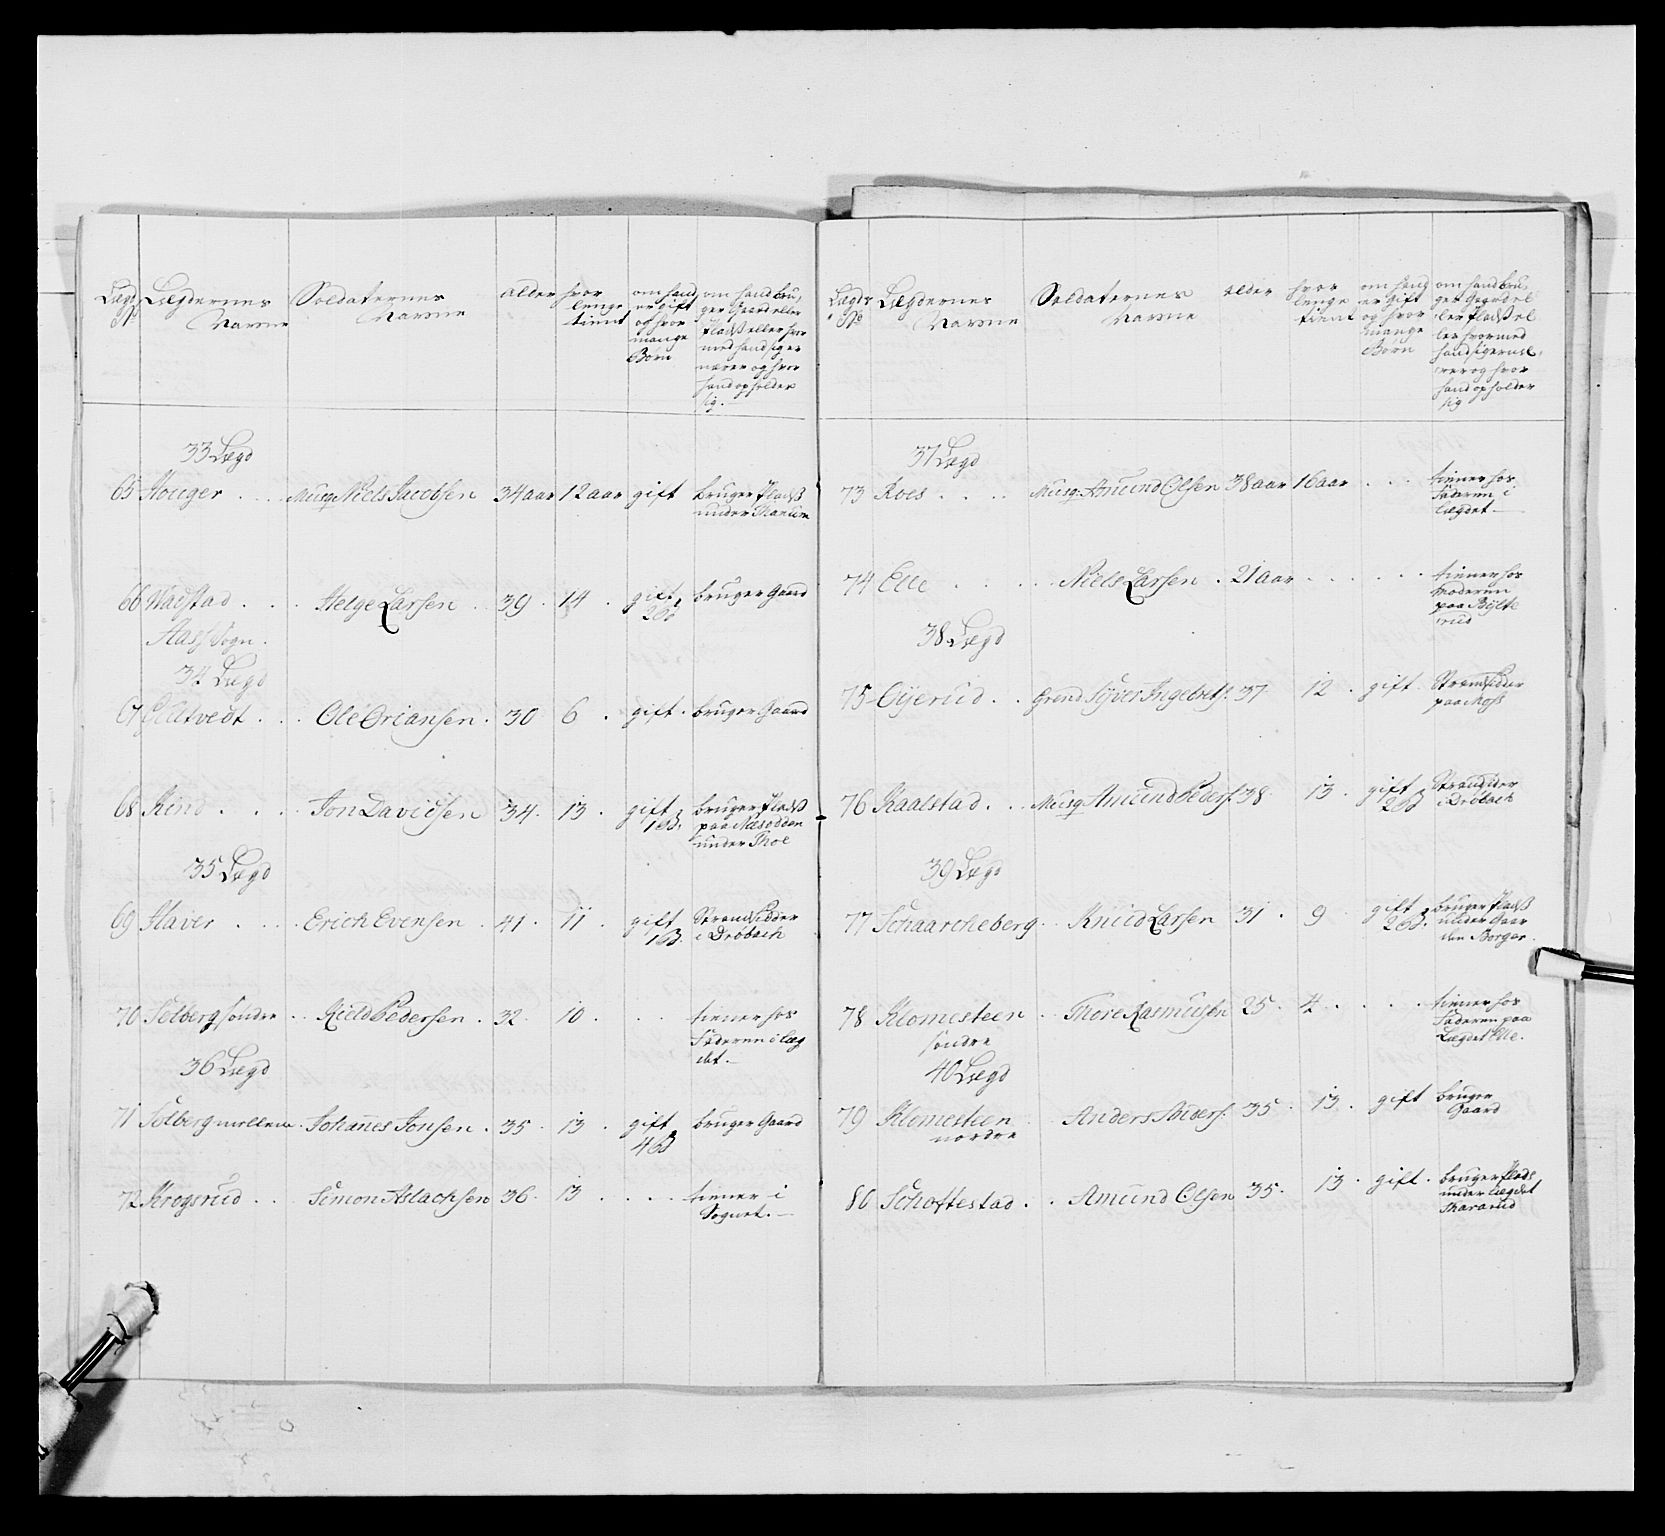 Lægds No
Lægdernes Navne
Soldaternes Navne
alder
hvor lenge tient
om hand er gift og hvor mange Børn
om hand bruger Gaard eller Pladß eller hvormed hand sig er nærer og hvor hand opholder sig.
33 Lægd
65 Houger . . . Musq. Niels Jacobsen 34 aar 12 aar gift bruger Pladß
under Thanum
66 Wadstad . . . Helge Larsen . 39 . 14 . gift bruger Gaard
2 B
Aass Sogn.
34 Lægd
67 Gultvedt . . . Ole Ouiansen . 30 6 . gift . bruger Gaard
68 Rind . . . . Jon Davidsen . 34 . 13 . gift bruger Pladß
1 B. paa Næsodden
under Thoe
35 Lægd
69 Haver . . . Erich Evensen . 41 . 11 . gift Strandsidder
1 B. i Drøbach
70 Solberg søndre . . Kield Pedersen . 32 . 10 . . . tiener hos
Faderen i læg
det.
36 Lægd
71 Solberg mellem . Johannes Jonsen . 35 . 13 . gift bruger Gaard
4 B
72 Krogsrud . . . Simon Aslachsen 36 . 13 . . . . tiener i
Sognet.
Lægds No
Lægdernes Navne
Soldaternes Navne
alder
hvor lenge tient
om hand er gift og hvor mange Børn
om hand bruger Gaard eller Pladß eller hvormed hand sig ernærer og hvor hand opholder sig
37 Lægd
73 Roes . . . . Musq. Amund Olsen 38 aar 16 aar . . . tiener hos
Faderen i
Lægdet
74 Elle . . . . Niels Larsen . 21 aar . . . . . . tiener hos
Moderen
paa Bylte
rud
38 Lægd
75 Oyerud . . Grend Syver Ingebrets. 37 12 . gift . Strandsidder
paa Moss
76 Kaalstad . . . Musq Amund Peders. 38 . 13 . gift Strandsider
2 B. i Drøbach
39 Lægd
77 Schaarcheberg . . Knud Larsen 31 . 9 . gift bruger Pladß
2 B. under Gaar
den Borger.
78 Klomesteen . . Thore Rasmusen 25 . 4 . . . . tiener hos
søndre Faderen paa
Lægdet Elle.
40 Lægd
79 Klomesteen . . Anders Anders. 35 . 13 . gift bruger
nordre Gaard
80 Schoftestad . . . Amund Olsen 35 . 13 . gift . bruger Plads
under Lægdet
Skararud